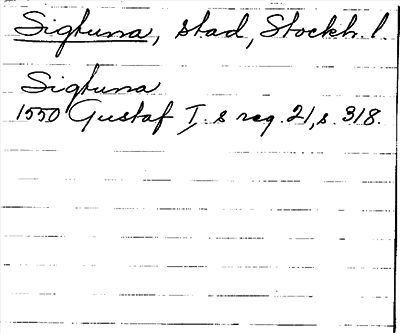 Sigtuna, stad, Stockh. l
Sigtuna
1550 Gustaf I. s reg. 21, s. 318.